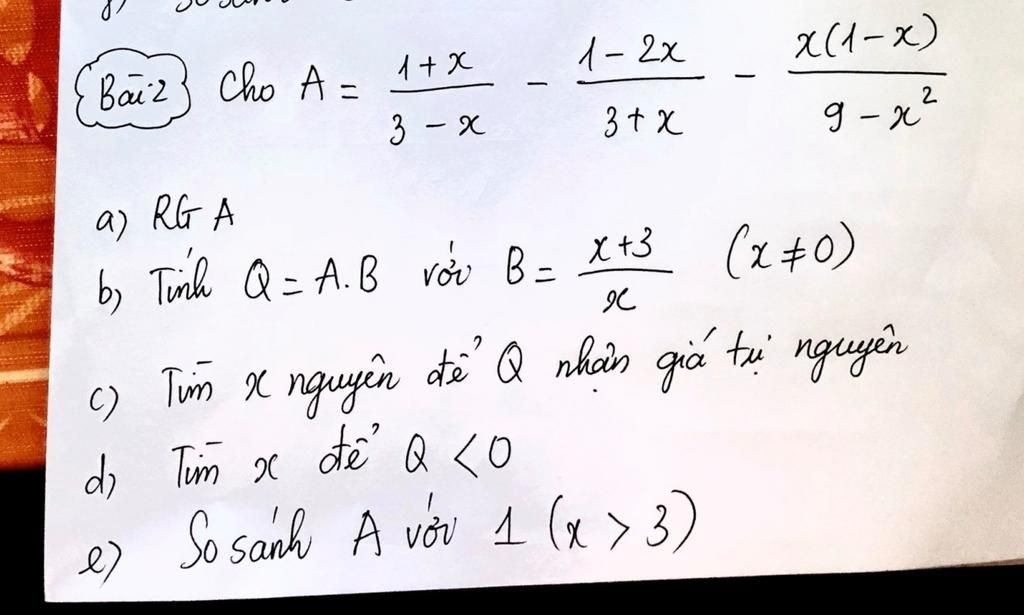 g) So sánh
Bài 2 Cho A = \frac{1+x}{3-x} - \frac{1-2x}{3+x} - \frac{x(1-x)}{9-x^2}
a) RG A
b) Tính Q = A.B với B = \frac{x+3}{x} (x ≠ 0)
c) Tìm x nguyên để Q nhận giá trị nguyên
d) Tìm x để Q < 0
e) So sánh A với 1 (x > 3)